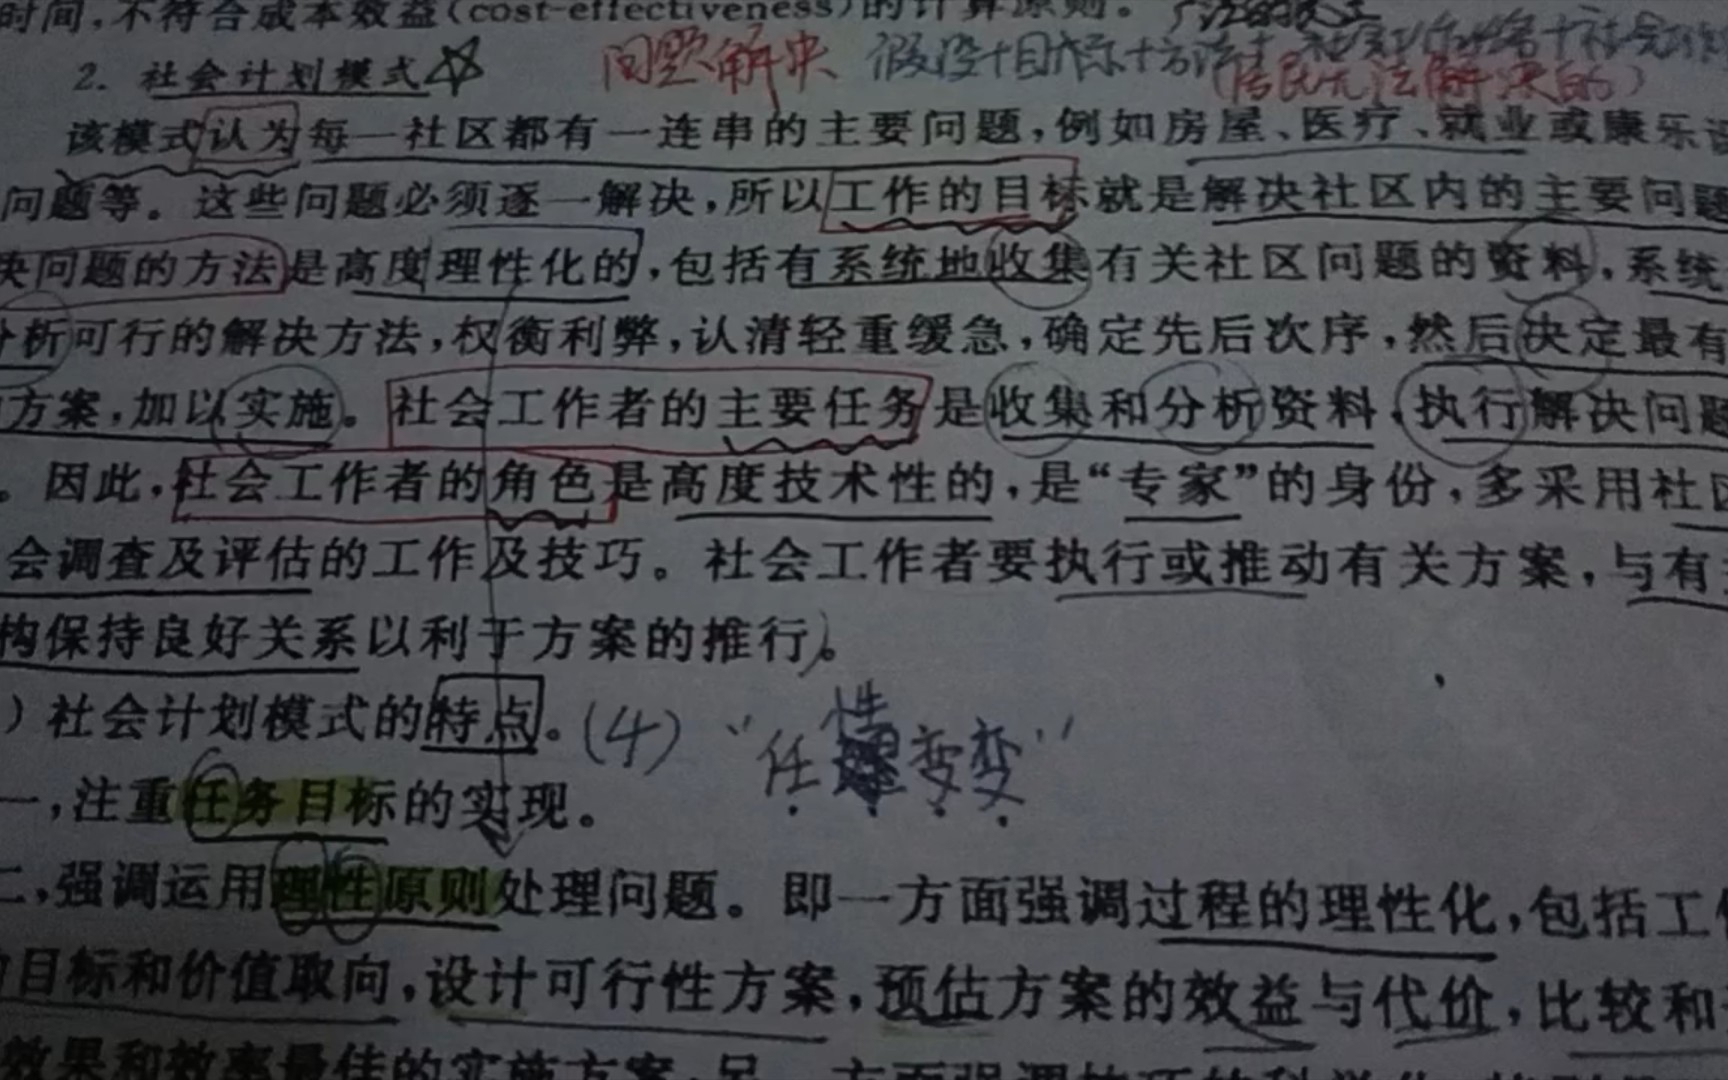 时间,不符合成本效益(cost-effectiveness)的计算原则。
2. 社会计划模式☆ 问题解决 假设+目标+方法+
(居民无法解决的)
该模式认为每一社区都有一连串的主要问题,例如房屋、医疗、就业或康乐设
问题等。这些问题必须逐一解决,所以工作的目标就是解决社区内的主要问题
决问题的方法是高度理性化的,包括有系统地收集有关社区问题的资料,系统
分析可行的解决方法,权衡利弊,认清轻重缓急,确定先后次序,然后决定最有
方案,加以实施。社会工作者的主要任务是收集和分析资料,执行解决问题
。因此,社会工作者的角色是高度技术性的,是“专家”的身份,多采用社区
会调查及评估的工作及技巧。社会工作者要执行或推动有关方案,与有
构保持良好关系以利于方案的推行)。
)社会计划模式的特点。(4)“任性变变”
一,注重任务目标的实现。
二,强调运用理性原则处理问题。即一方面强调过程的理性化,包括工作
目标和价值取向,设计可行性方案,预估方案的效益与代价,比较和
效果和效率最佳的实施方案;另一方面强调